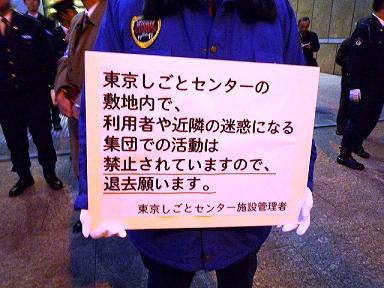 東京しごとセンターの
敷地内で、
利用者や近隣の迷惑になる
集団での活動は
禁止されていますので、
退去願います。
東京しごとセンター施設管理者